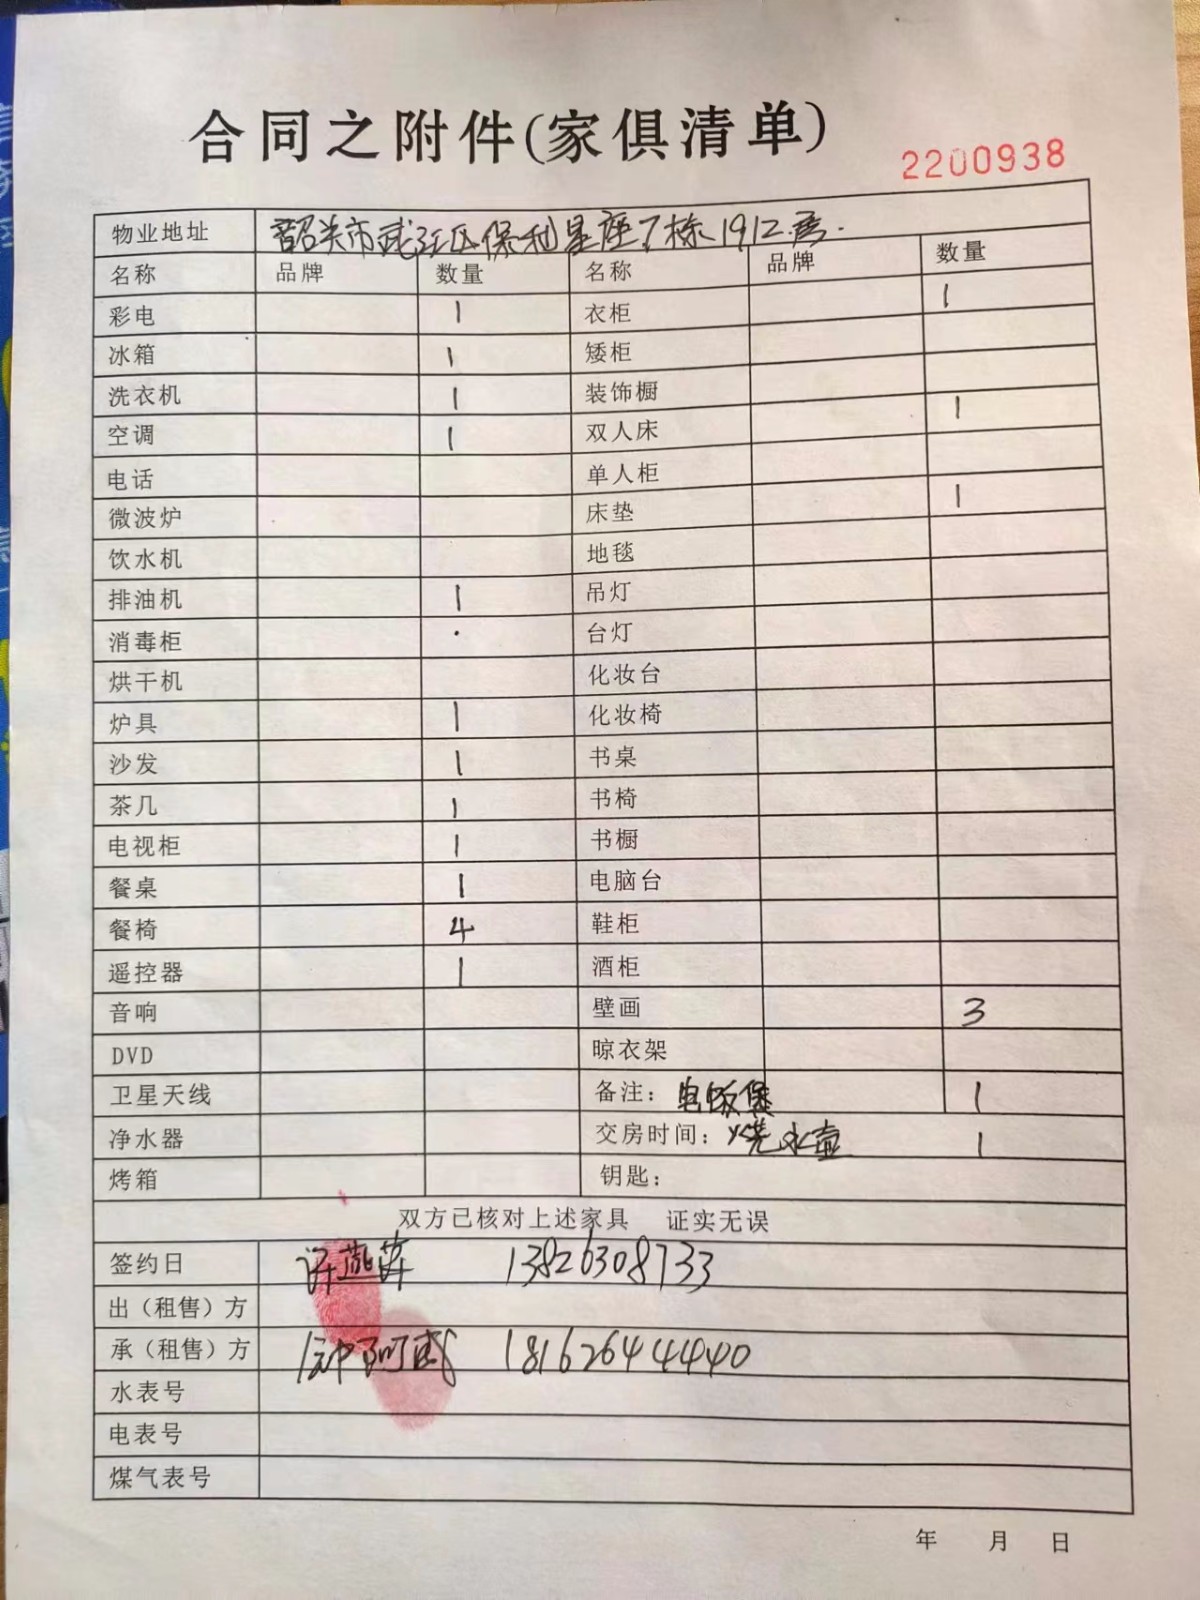 合同之附件(家俱清单)
2200938
物业地址 韶关市武江区保利星座7栋1912房.
名称 品牌 数量 名称 品牌 数量
彩电 1 衣柜 1
冰箱 1 矮柜
洗衣机 1 装饰橱
空调 1 双人床 1
电话 单人柜
微波炉 床垫 1
饮水机 地毯
排油机 1 吊灯
消毒柜 台灯
烘干机 化妆台
炉具 1 化妆椅
沙发 1 书桌
茶几 1 书椅
电视柜 1 书橱
餐桌 1 电脑台
餐椅 4 鞋柜
遥控器 1 酒柜
音响 壁画 3
DVD 晾衣架
卫星天线 备注：电饭煲 1
净水器 交房时间：烧水壶 1
烤箱 钥匙：
双方已核对上述家具 证实无误
签约日 许燕萍 13826308733
出（租售）方
承（租售）方 钟阿武 18162644440
水表号
电表号
煤气表号
年 月 日